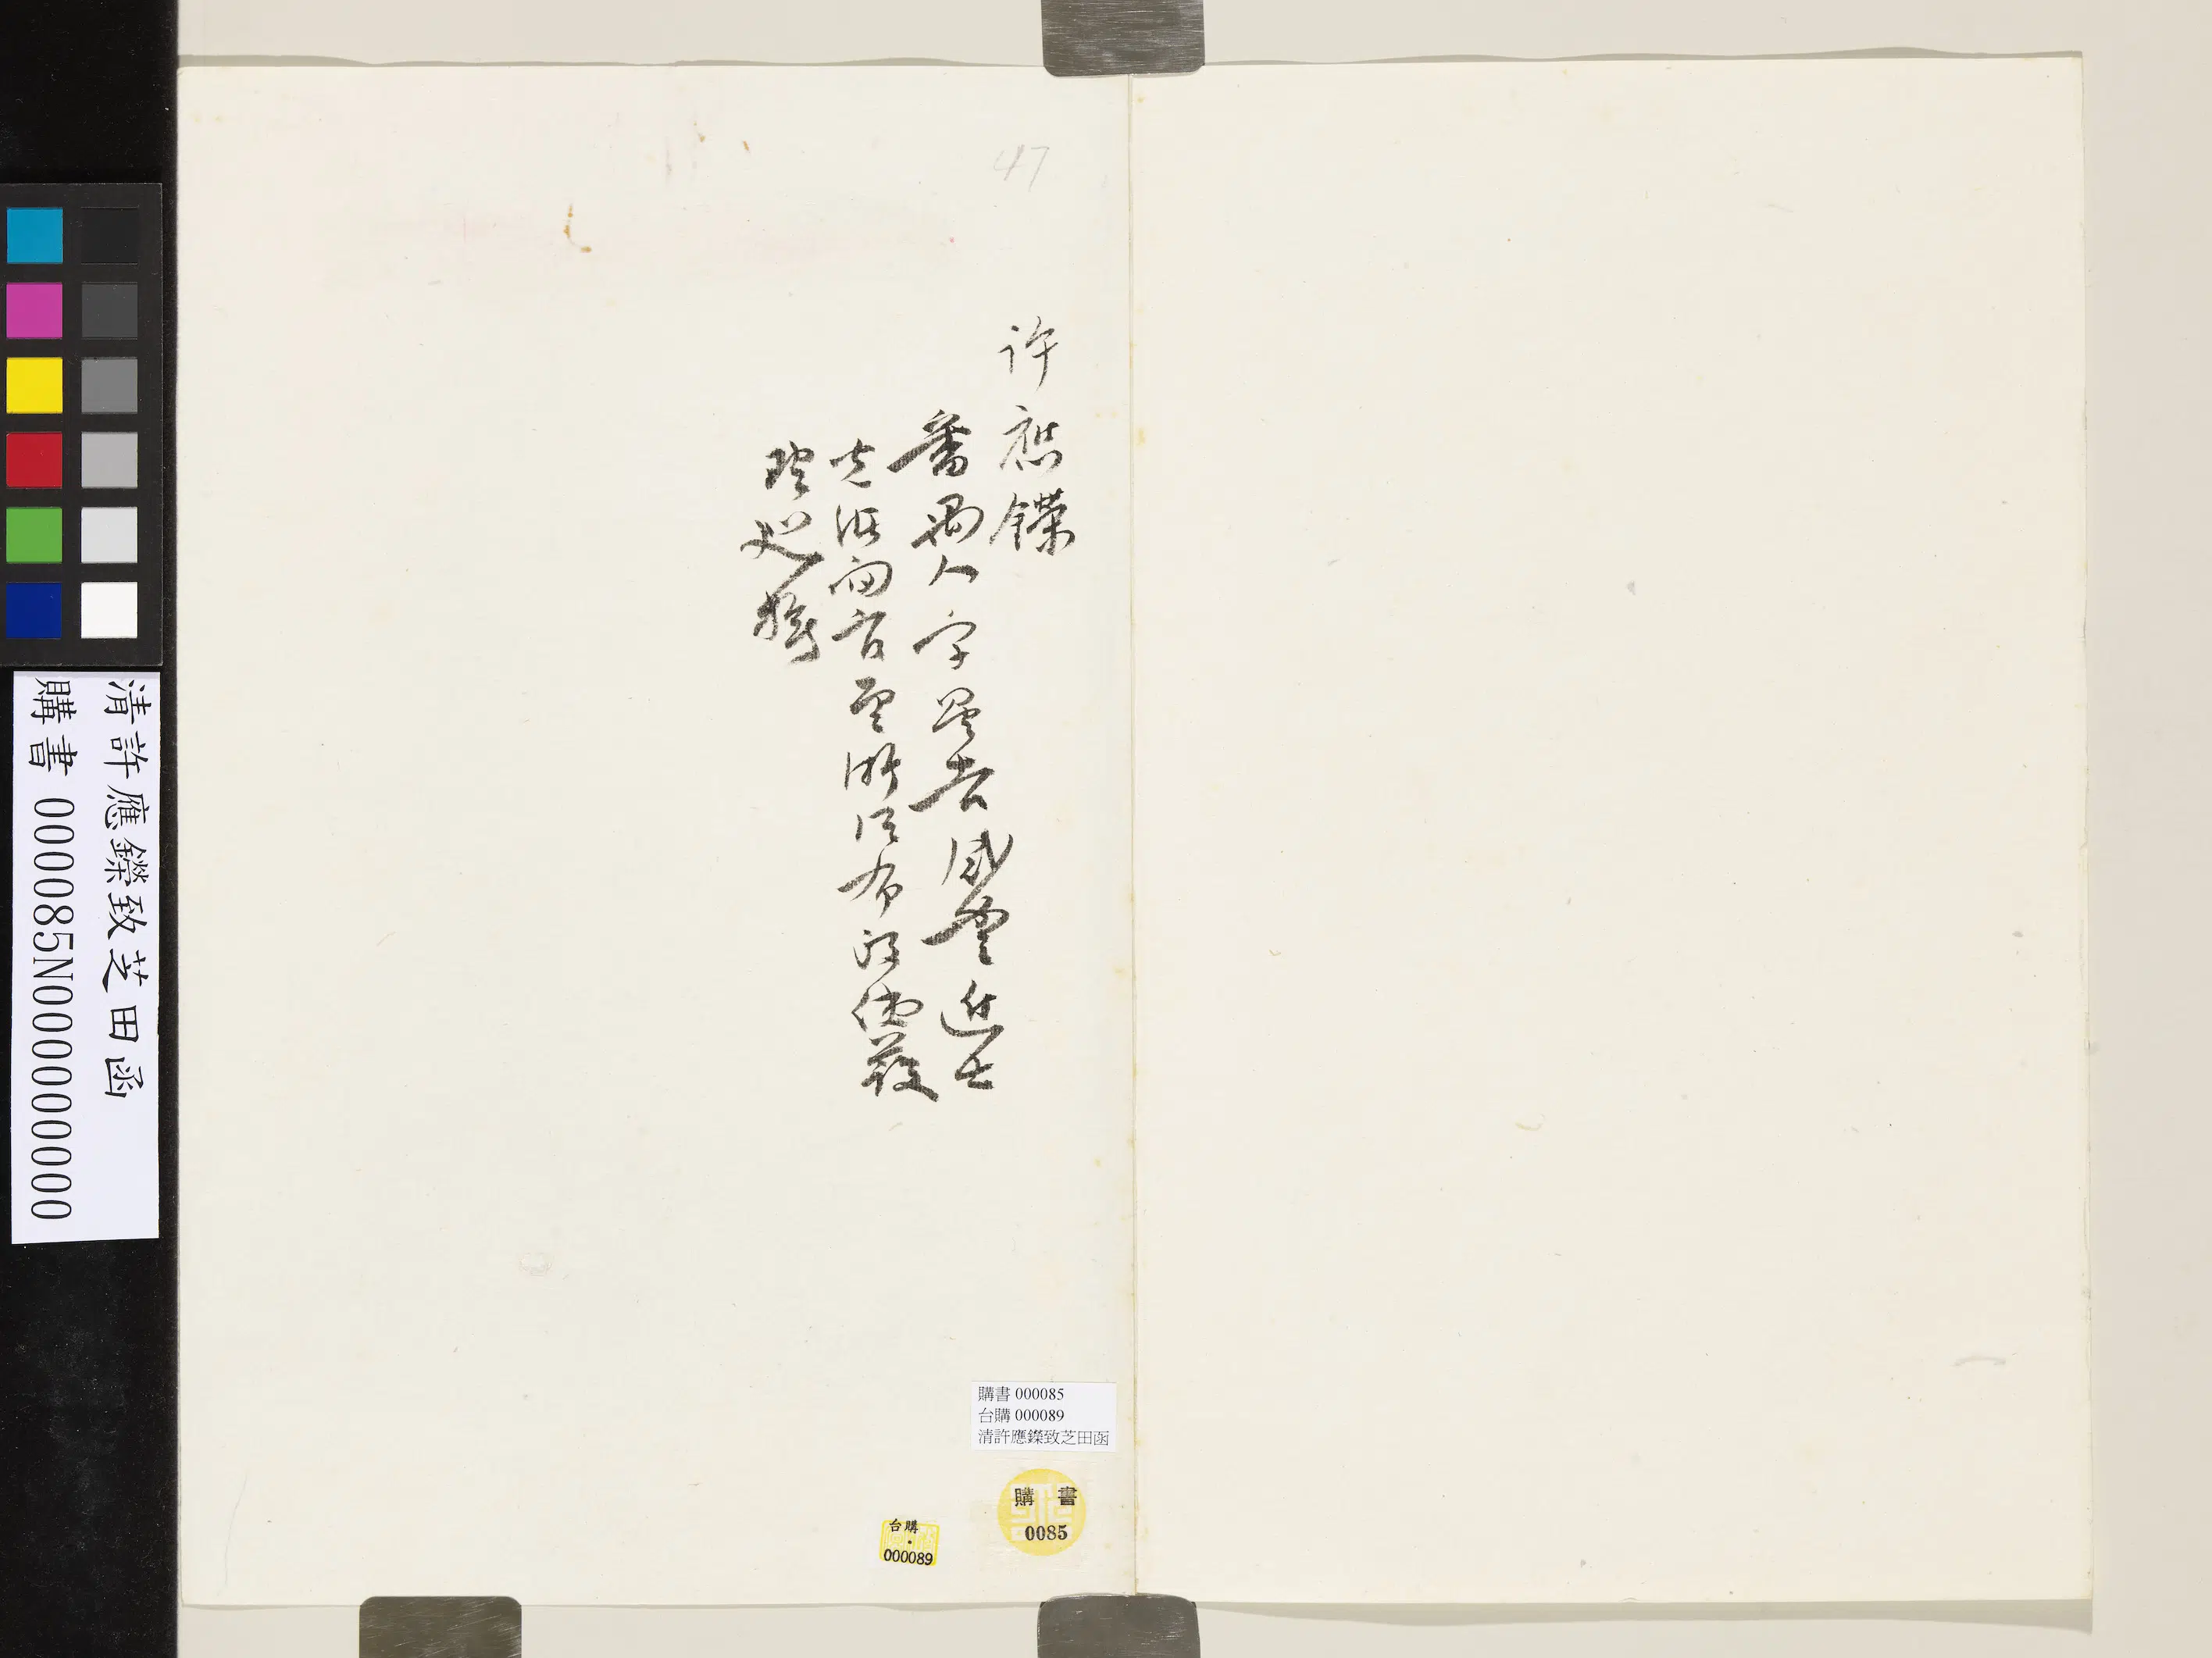 47
許應鑅
番禺人字星臺咸豐進士
光緒間官至浙江布政使護
理巡撫
購書 000085
台購 000089
清許應鑅致芝田函
購書
0085
台購
000089
清許應鑅致芝田函
購書 000085N000000000